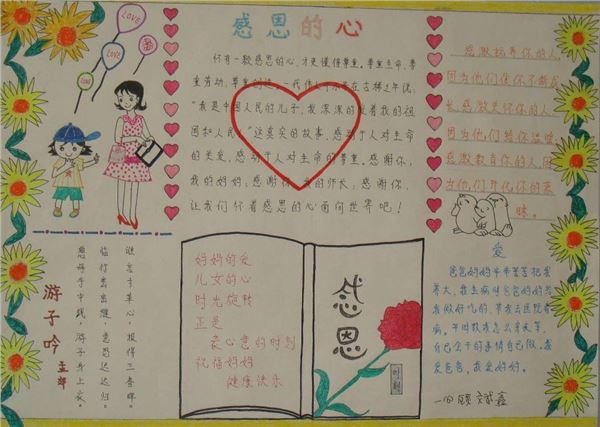 感恩的心
LOVE
LOVE
怀有一颗感恩的心，才更懂得尊重。尊重生命、尊
重劳动、尊重创造。一代伟人邓小平古稀之年说：
“我是中国人民的儿子，我深深的爱着我的祖
国和人民！”这真实的故事，感动于人对生命
的关爱，感动于人对生命的尊重。感谢你，
我的妈妈；感谢你，我的师长；感谢你
让我们怀着感恩的心面向世界吧！
感激抚养你的人，
因为他们使你不断成
长感激关怀你的人
因为他们给你温暖
感激教育你的人因
为他们开化你的蒙
昧。
游子吟
孟郊
慈母手中线，游子身上衣。
临行密密缝，意恐迟迟归。
谁言寸草心，报得三春晖。
妈妈的爱
儿女的心
时光旋转
正是
表心意的时刻
祝福妈妈
健康快乐
感恩
爱
爸爸妈妈辛辛苦苦把我
养大，我生病时爸爸妈妈给
我做好吃的，带我去医院看
病，平时教我怎么学关爱，
自己会干的事情自己做。我
爱爸爸，我爱妈妈。